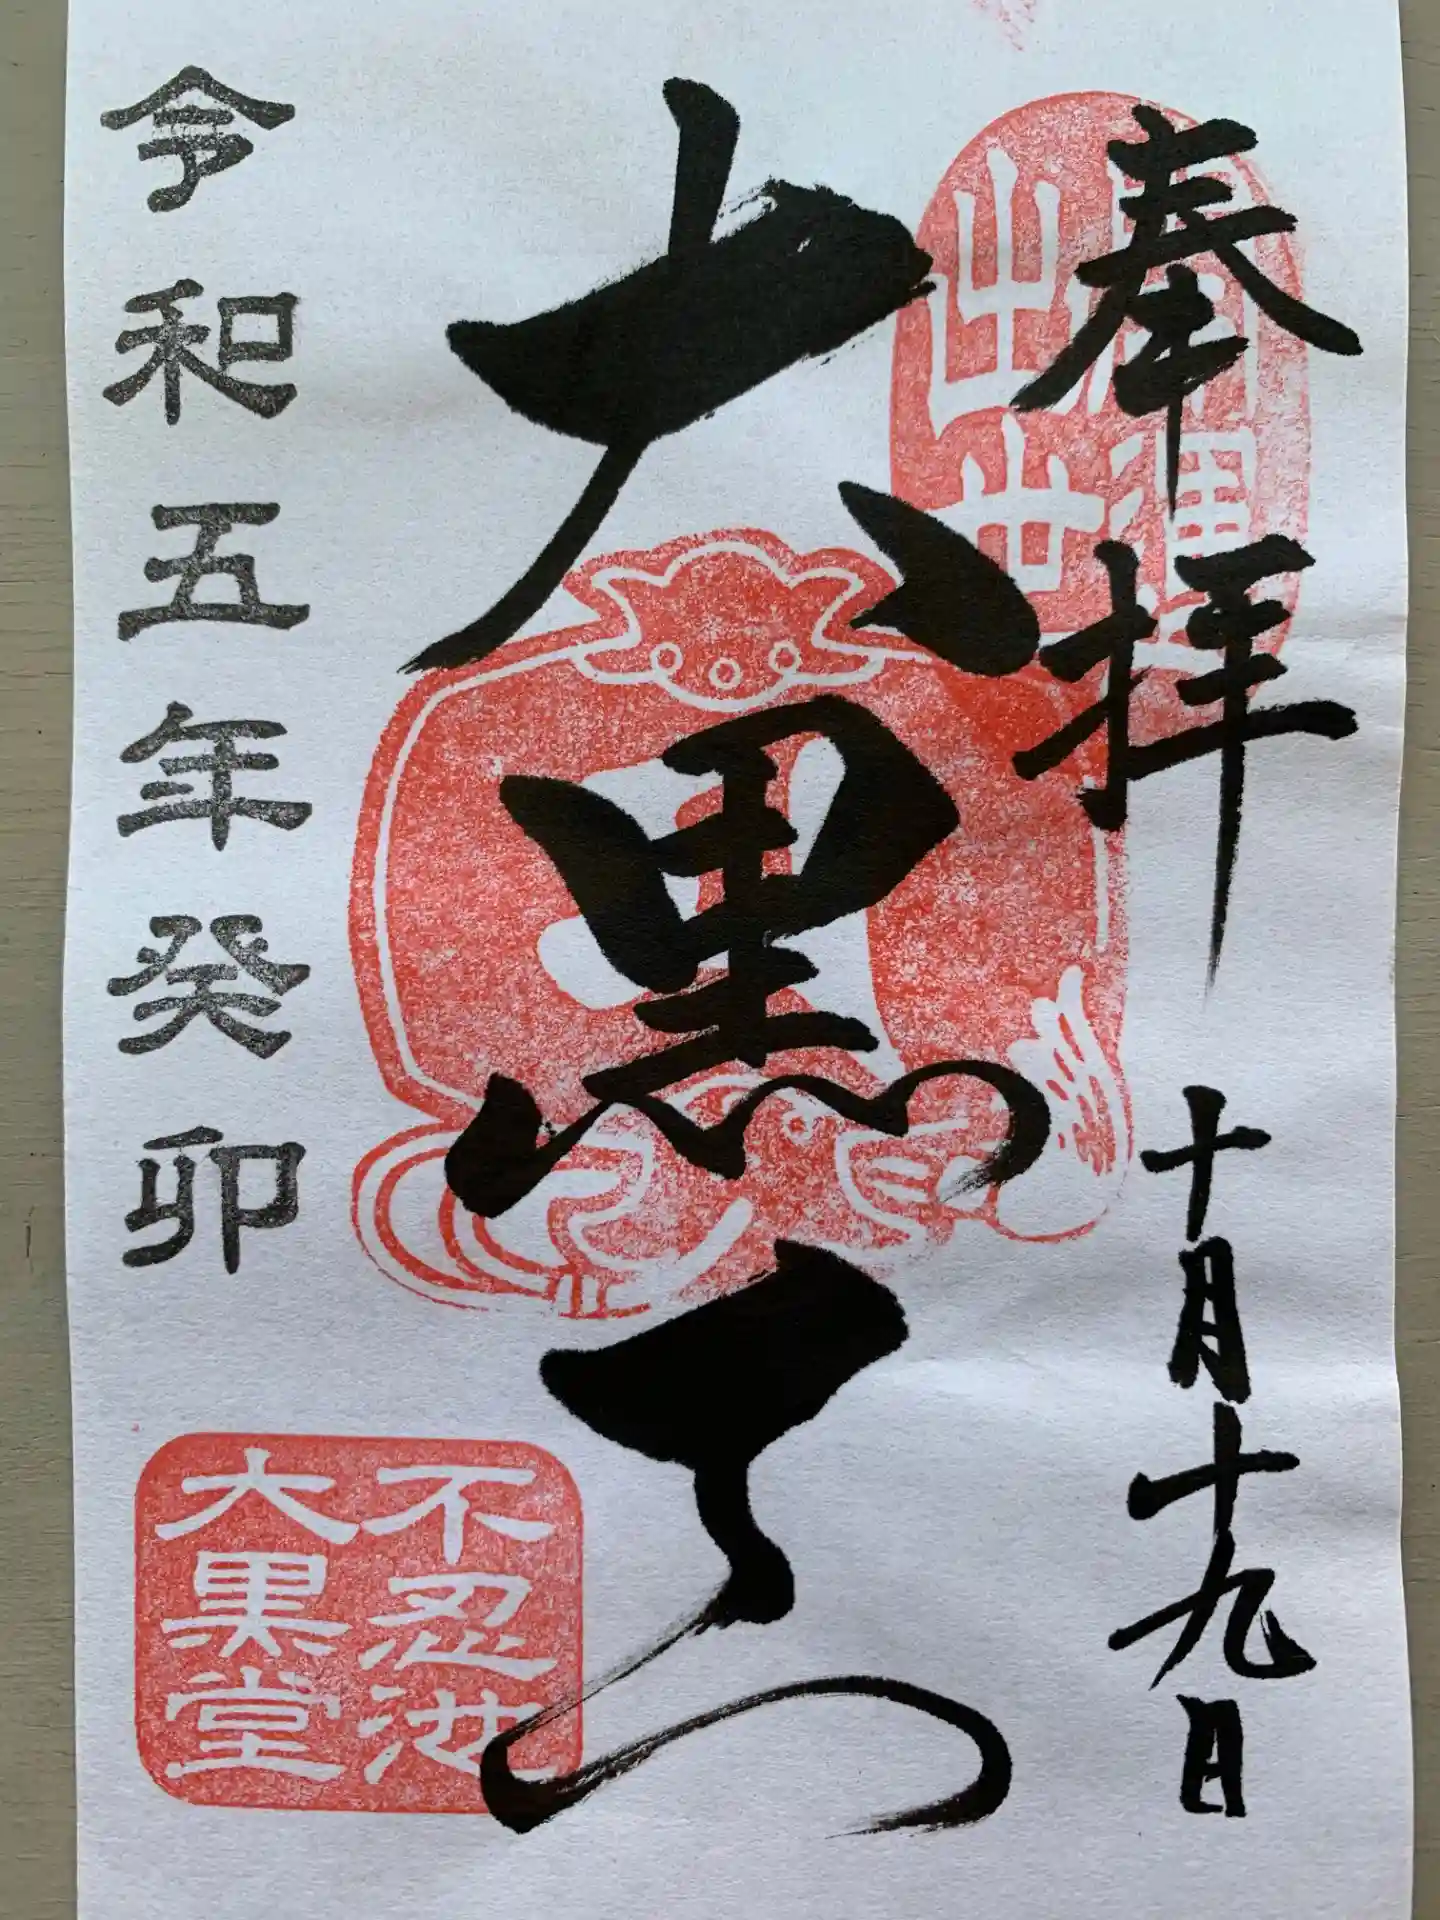 奉拝
十月十九日
開運
出世
大黒天
令和五年癸卯
不忍池
大黒堂